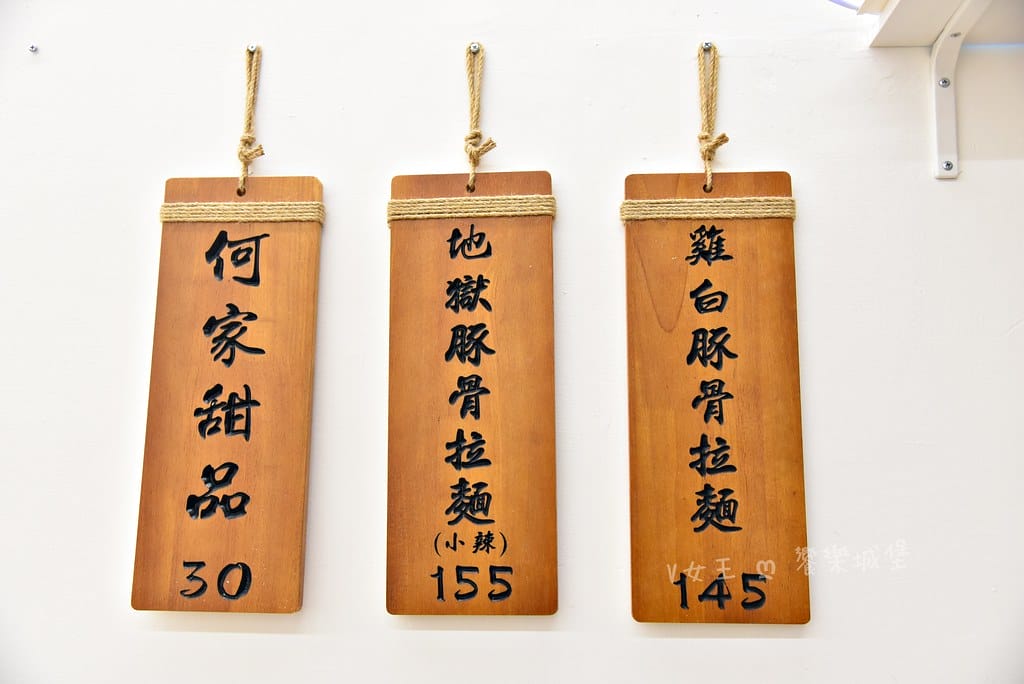 何家甜品
30
地獄豚骨拉麵
(小辣)
155
雞白豚骨拉麵
145
V女王 ღ 饗樂城堡